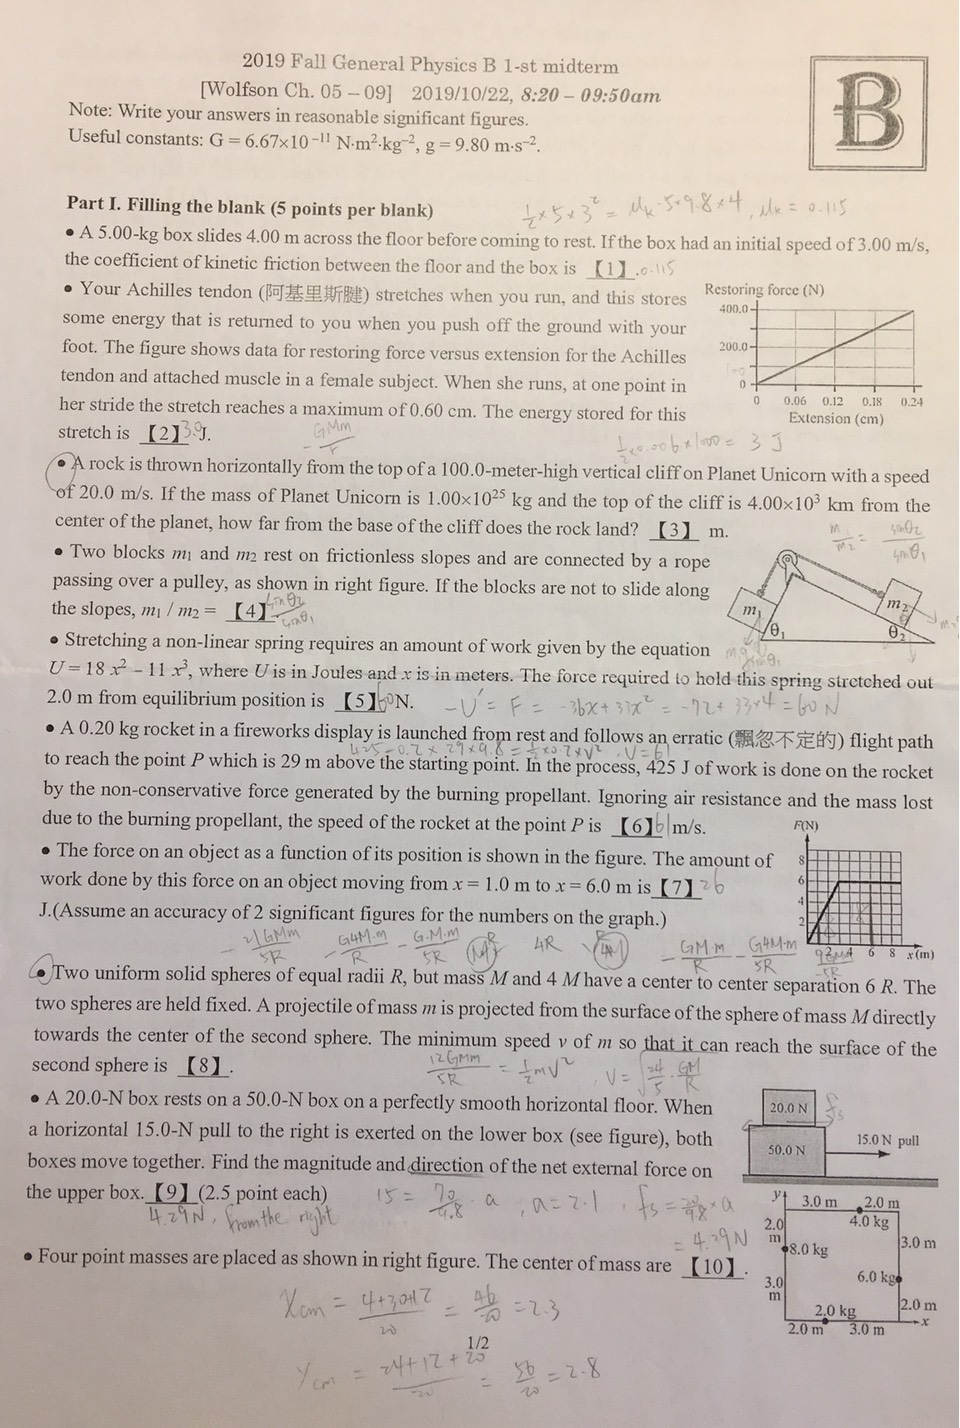 2019 Fall General Physics B 1-st midterm
[Wolfson Ch. 05 – 09] 2019/10/22, 8:20 – 09:50am
B
Note: Write your answers in reasonable significant figures.
Useful constants: G = 6.67×10⁻¹¹ N·m²·kg⁻², g = 9.80 m·s⁻².
Part I. Filling the blank (5 points per blank)
½×5×3² = μk·5×9.8×4, μk = 0.115
• A 5.00-kg box slides 4.00 m across the floor before coming to rest. If the box had an initial speed of 3.00 m/s,
the coefficient of kinetic friction between the floor and the box is 【1】. 0.115
• Your Achilles tendon (阿基里斯腱) stretches when you run, and this stores
some energy that is returned to you when you push off the ground with your
foot. The figure shows data for restoring force versus extension for the Achilles
tendon and attached muscle in a female subject. When she runs, at one point in
her stride the stretch reaches a maximum of 0.60 cm. The energy stored for this
stretch is 【2】 3.0 J.
Restoring force (N)
400.0
200.0
0
0 0.06 0.12 0.18 0.24
Extension (cm)
GMm
½×0.006×1000 = 3 J
• A rock is thrown horizontally from the top of a 100.0-meter-high vertical cliff on Planet Unicorn with a speed
of 20.0 m/s. If the mass of Planet Unicorn is 1.00×10²⁵ kg and the top of the cliff is 4.00×10³ km from the
center of the planet, how far from the base of the cliff does the rock land? 【3】 m.
m₁/m₂ = sinθ₂/sinθ₁
• Two blocks m₁ and m₂ rest on frictionless slopes and are connected by a rope
passing over a pulley, as shown in right figure. If the blocks are not to slide along
the slopes, m₁ / m₂ = 【4】 sinθ₂/sinθ₁
m₁ θ₁ m₂ θ₂
• Stretching a non-linear spring requires an amount of work given by the equation
U = 18 x² – 11 x³, where U is in Joules and x is in meters. The force required to hold this spring stretched out
2.0 m from equilibrium position is 【5】 60 N.
-U' = F = -36x+33x² = -72+33×4 = 60 N
• A 0.20 kg rocket in a fireworks display is launched from rest and follows an erratic (飄忽不定的) flight path
425-0.2×29×9.8 = ½×0.2×V², V=61
to reach the point P which is 29 m above the starting point. In the process, 425 J of work is done on the rocket
by the non-conservative force generated by the burning propellant. Ignoring air resistance and the mass lost
due to the burning propellant, the speed of the rocket at the point P is 【6】 61 m/s.
• The force on an object as a function of its position is shown in the figure. The amount of
work done by this force on an object moving from x = 1.0 m to x = 6.0 m is 【7】 26
J.(Assume an accuracy of 2 significant figures for the numbers on the graph.)
F(N)
8
6
4
2
2 4 6 8 x(m)
-21GMm/5R -G4M·m/R -G·M·m/5R M R 4R 4M -GM·m/R -G4M·m/5R
• Two uniform solid spheres of equal radii R, but mass M and 4 M have a center to center separation 6 R. The
two spheres are held fixed. A projectile of mass m is projected from the surface of the sphere of mass M directly
towards the center of the second sphere. The minimum speed v of m so that it can reach the surface of the
second sphere is 【8】.
12GMm/5R = ½mV², V = √(24/5 · GM/R)
• A 20.0-N box rests on a 50.0-N box on a perfectly smooth horizontal floor. When
a horizontal 15.0-N pull to the right is exerted on the lower box (see figure), both
boxes move together. Find the magnitude and direction of the net external force on
the upper box.【9】(2.5 point each)
20.0 N
50.0 N
15.0 N pull
fs
15 = 70/9.8 · a, a = 2.1, fs = 20/9.8 × a
= 4.29N
4.29N, from the right
• Four point masses are placed as shown in right figure. The center of mass are 【10】.
y
3.0 m 2.0 m
4.0 kg
2.0 m
8.0 kg
3.0 m
6.0 kg
3.0 m
2.0 kg
2.0 m
x
2.0 m 3.0 m
Xcm = 4+30+12/20 = 46/20 = 2.3
1/2
Ycm = 24+12+20/20 = 56/20 = 2.8